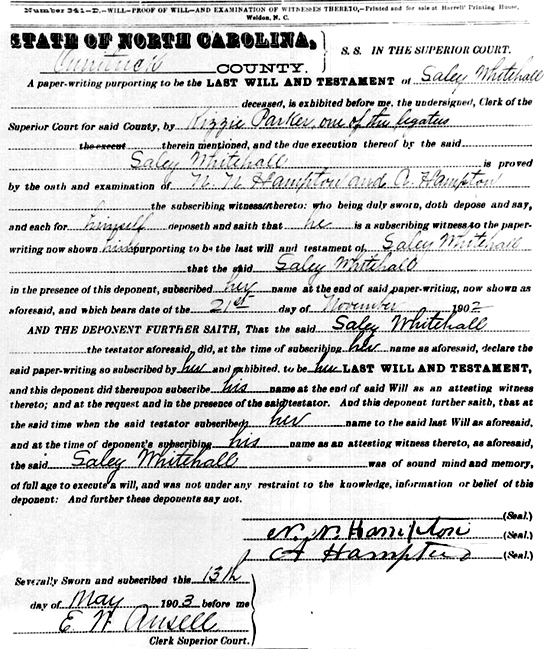 Number 341-D.—WILL—PROOF OF WILL—AND EXAMINATION OF WITNESSES THERETO,—Printed and for sale at Harrell' Printing House,
Weldon, N. C.
STATE OF NORTH CAROLINA,
Currituck COUNTY.
S. S. IN THE SUPERIOR COURT.
A paper-writing purporting to be the LAST WILL AND TESTAMENT of Saley Whitehall
deceased, is exhibited before me, the undersigned, Clerk of the
Superior Court for said County, by Kizzie Parker, one of the legatus
the execut therein mentioned, and the due execution thereof by the said
Saley Whitehall is proved
by the oath and examination of N. N. Hampton and C. Hampton
the subscribing witnesses thereto: who being duly sworn, doth depose and say,
and each for himself deposeth and saith that he is a subscribing witness to the paper-
writing now shown him purporting to be the last will and testament of Saley Whitehall
that the said Saley Whitehall
in the presence of this deponent, subscribed her name at the end of said paper-writing, now shown as
aforesaid, and which bears date of the 21st day of November 1902
AND THE DEPONENT FURTHER SAITH, That the said Saley Whitehall
the testator aforesaid, did, at the time of subscribing her name as aforesaid, declare the
said paper-writing so subscribed by her and exhibited, to be her LAST WILL AND TESTAMENT,
and this deponent did thereupon subscribe his name at the end of said Will as an attesting witness
thereto; and at the request and in the presence of the said testator. And this deponent further saith, that at
the said time when the said testator subscribed her name to the said last Will as aforesaid,
and at the time of deponent's subscribing his name as an attesting witness thereto, as aforesaid,
the said Saley Whitehall was of sound mind and memory,
of full age to execute a will, and was not under any restraint to the knowledge, information or belief of this
deponent: And further these deponents say not.
(Seal.)
N. N. Hampton (Seal.)
Hampton (Seal.)
Severally Sworn and subscribed this 13th
day of May 1903 before me
E. W. Ansell
Clerk Superior Court.